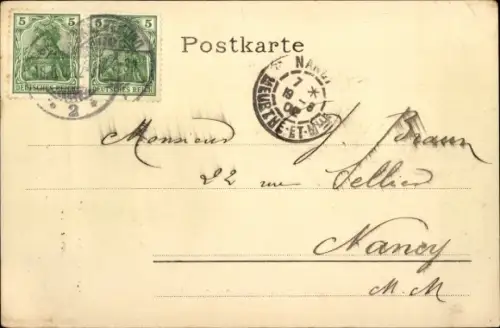 5 5
DEUTSCHES REICH DEUTSCHES REICH
2
Postkarte
NANCY
7 *
18 - 8
MEURTHE-ET-MLLE
Monsieur J. Braun
22 rue Sellier
Nancy
M. M